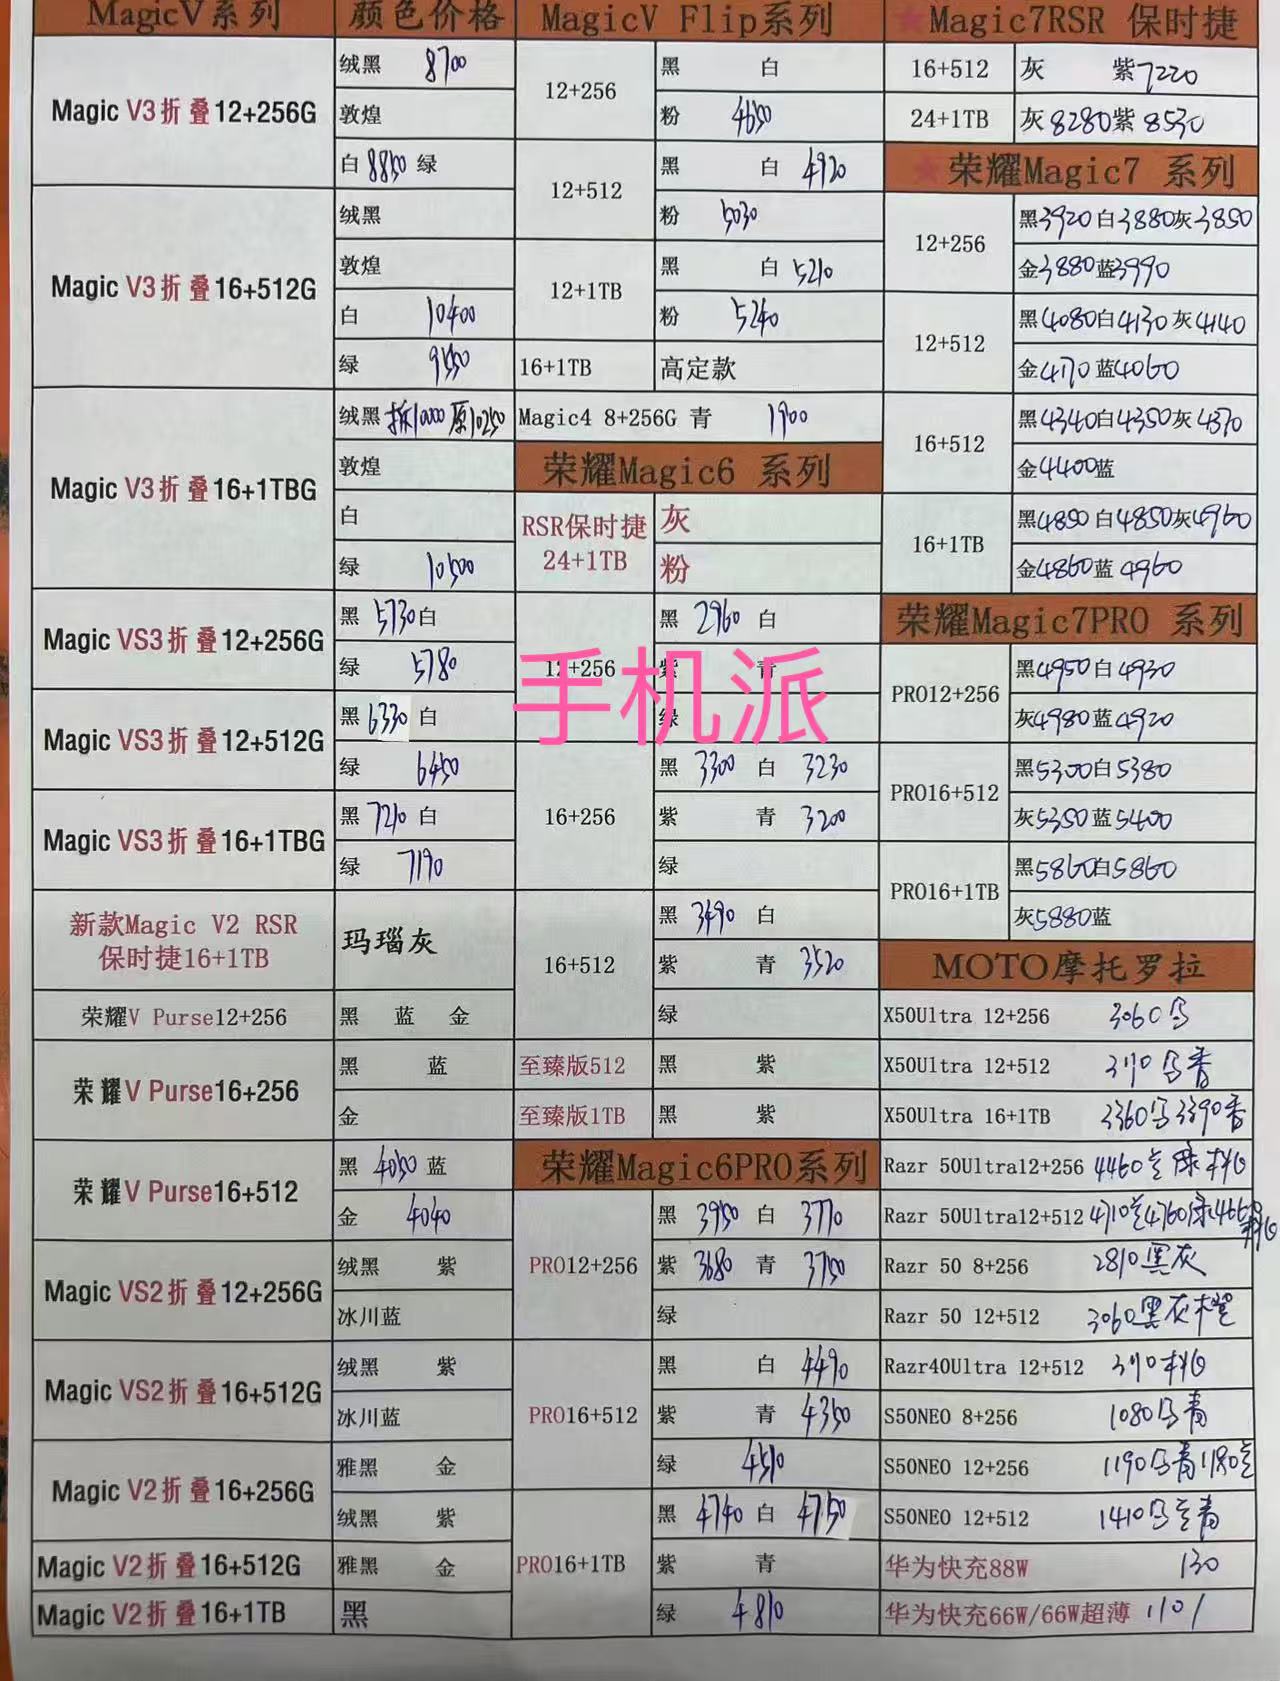 MagicV系列 颜色价格
Magic V3折叠12+256G
绒黑 8700
敦煌
白8850 绿
Magic V3折叠16+512G
绒黑
敦煌
白 10400
绿 9550
Magic V3折叠16+1TBG
绒黑 拆10000 原10250
敦煌
白
绿 10500
Magic VS3折叠12+256G
黑 5730白
绿 5780
Magic VS3折叠12+512G
黑 6330 白
绿 6450
Magic VS3折叠16+1TBG
黑 7210 白
绿 7190
新款Magic V2 RSR
保时捷16+1TB
玛瑙灰
荣耀V Purse12+256
黑 蓝 金
荣耀V Purse16+256
黑 蓝
金
荣耀V Purse16+512
黑 4050 蓝
金 4040
Magic VS2折叠12+256G
绒黑 紫
冰川蓝
Magic VS2折叠16+512G
绒黑 紫
冰川蓝
Magic V2折叠16+256G
雅黑 金
绒黑 紫
Magic V2折叠16+512G
雅黑 金
Magic V2折叠16+1TB
黑
MagicV Flip系列
12+256
黑 白
粉 4650
12+512
黑 白 4920
粉 5030
12+1TB
黑 白 5210
粉 5240
16+1TB 高定款
Magic4 8+256G 青 1900
荣耀Magic6 系列
RSR保时捷
24+1TB
灰
粉
12+256
黑 2960 白
紫 青
绿
手机派
16+256
黑 3300 白 3230
紫 青 3200
绿
16+512
黑 3490 白
紫 青 3520
绿
至臻版512 黑 紫
至臻版1TB 黑 紫
荣耀Magic6PRO系列
PRO12+256
黑 3950 白 3770
紫 3680 青 3750
绿
PRO16+512
黑 白 4490
紫 青 4350
绿 4510
PRO16+1TB
黑 4740 白 4750
紫 青
绿 4810
★Magic7RSR 保时捷
16+512 灰 紫7220
24+1TB 灰8280紫8530
★荣耀Magic7 系列
12+256
黑3920白3880灰3850
金3880蓝3990
12+512
黑4080白4130灰4140
金4170蓝4060
16+512
黑4340白4350灰4370
金4400蓝
16+1TB
黑4850白4850灰4960
金4860蓝4960
荣耀Magic7PRO 系列
PRO12+256
黑4950白4930
灰4980蓝4920
PRO16+512
黑5300白5380
灰5350蓝5400
PRO16+1TB
黑5860白5860
灰5880蓝
MOTO摩托罗拉
X50Ultra 12+256 3060
X50Ultra 12+512
X50Ultra 16+1TB 3360 3390
Razr 50Ultra12+256 4460
Razr 50Ultra12+512 4710 4760
Razr 50 8+256 2810黑灰
Razr 50 12+512 3060黑灰橙
Razr40Ultra 12+512
S50NEO 8+256 1080 青
S50NEO 12+256 1190 青1180
S50NEO 12+512 1410 青
华为快充88W 130
华为快充66W/66W超薄 110/